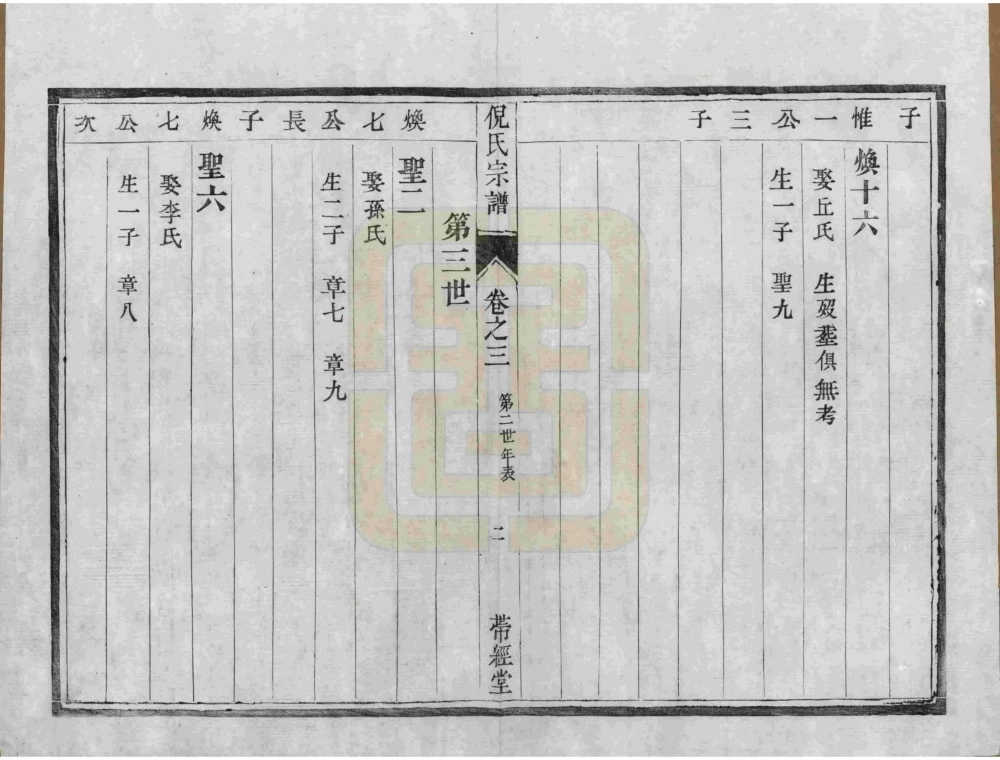 子
惟一公三子
煥十六
娶丘氏 生歿塟俱無考
生一子 聖九
倪氏宗譜 卷之三 第二世年表 二 帶經堂
第三世
煥七公長子
聖二
娶孫氏
生二子 章七 章九
煥七公次
聖六
娶李氏
生一子 章八